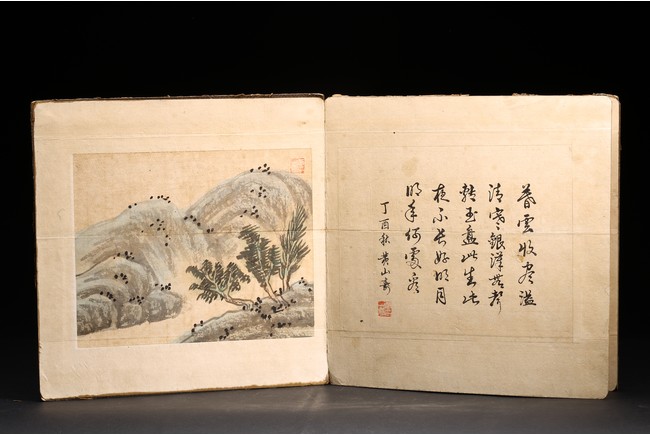 暮雲收盡溢
清寒銀漢無聲
轉玉盤此生此
夜不長好明月
明年何處看
丁酉秋黃山壽